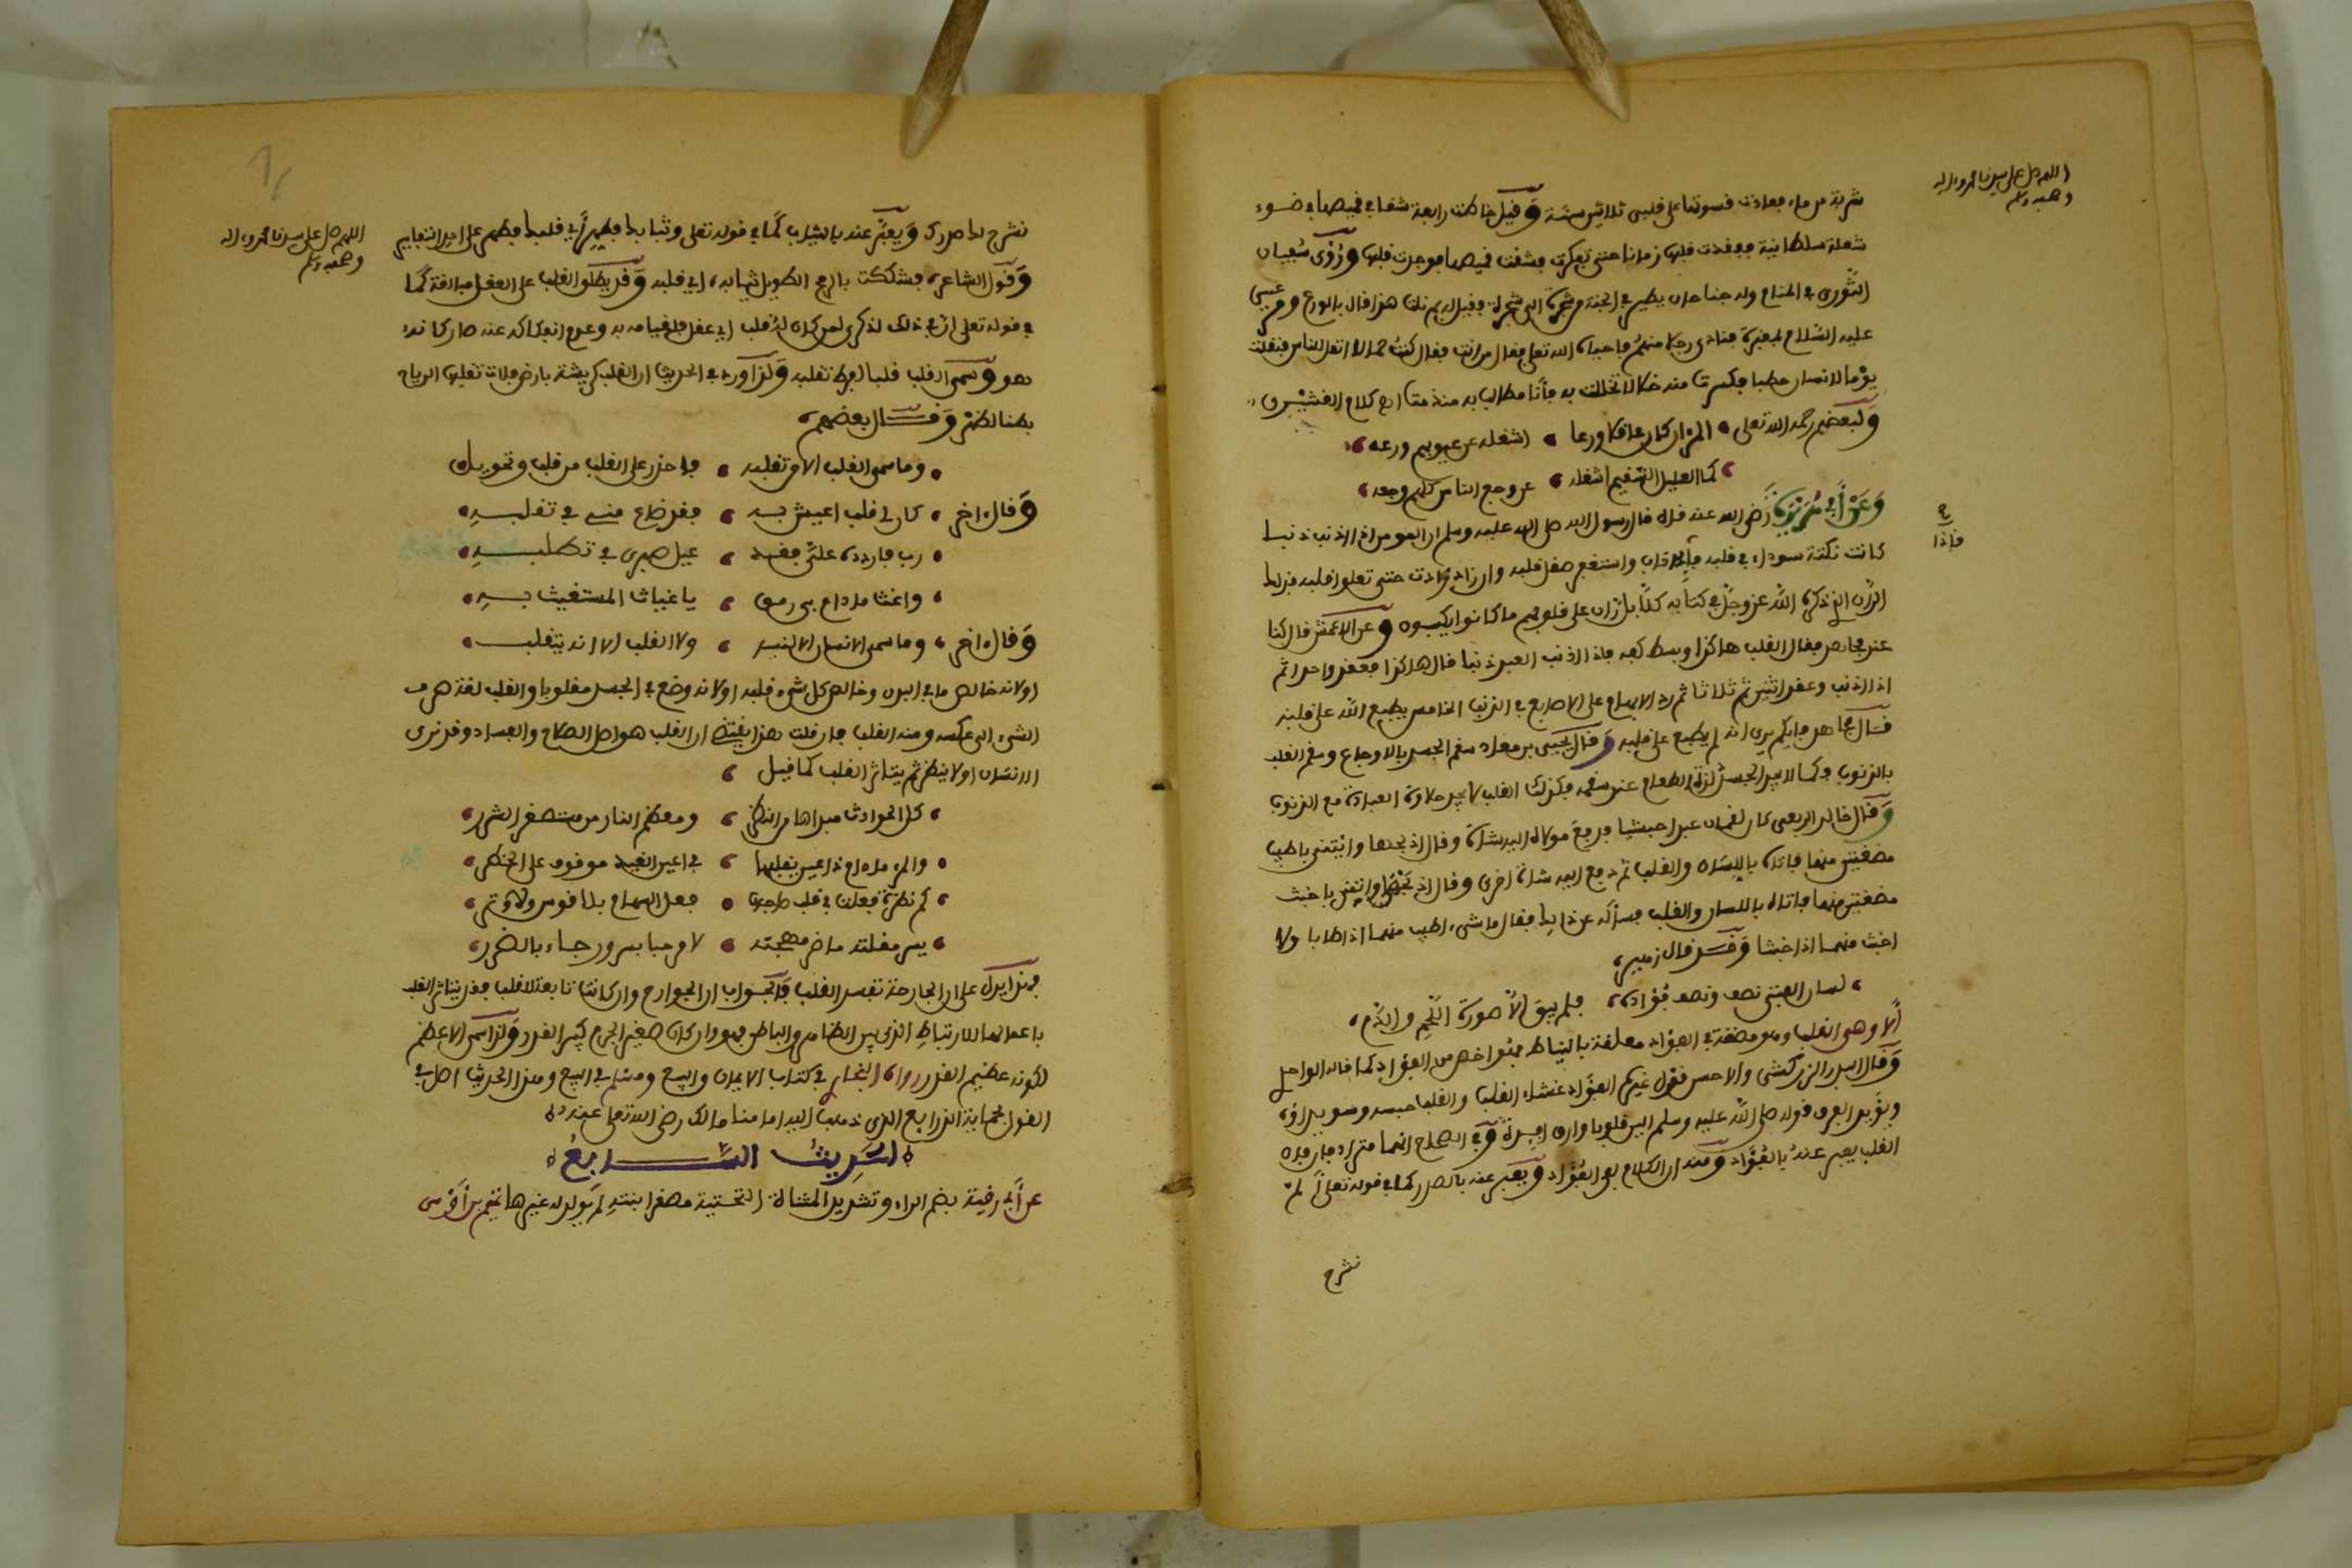 اللهم صل على سيدنا محمد وءاله
وصحبه وسلم
شربة من ماء فعادت قسوتها على قلبى ثلاثين سنة وقيل خاطت رابعة شقا في قميصها في ضوء
شعلة سلطانية ففقدت قلبها زمانا حتى تفكرت فشقت قميصها فوجدت قلبها ورُؤى سفيان
الثورى في المنام وله جناحان يطير في الجنة من شجرة الى شجرة فقيل له بم نلت هذا قال بالورع ومر عيسى
عليه السلام بمقبرة فنادى رجلا منهم فاحياه الله تعلى فقال من انت فقال كنت حمالا انقل للناس فنقلت
يوما لانسان حطبا فكسرت منه خلالا تخللت به فأنا مطالب به منذ مت اه كلام القشيرى
ولبعضهم رحمه الله تعلى المرء ان كان عاقلا ورعا اشغله عن عيوبهم ورعه
كما العليل السقيم اشغله عن وجع الناس كلهم وجعه
وعن أبي هريرة رضى الله عنه قال قال رسول الله صلى الله عليه وسلم ان المومن اذا اذنب ذنبا
كانت نكتة سوداء في قلبه فإن تاب واستغفر صقل قلبه وان زاد زادت حتى تعلو قلبه فذلك
فإذا
الران الذى ذكره الله عز وجل في كتابه كلا بل ران على قلوبهم ما كانوا يكسبون وعن الاعمش قال كنا
عند مجاهد فقال القلب هاكذا وبسط كفه فاذا اذنب العبد ذنبا قال هاكذا فعقد واحدا ثم
اذا اذنب وعقد اثنين ثم ثلاثا ثم رد الابهام على الاصابع في الذنب الخامس يطبع الله على قلبه
قال مجاهد فايكم يرى انه لم يطبع على قلبه وقال يحيى بن معاد سقم الجسد بالاوجاع وسقم القلب
بالذنوب فكما لا يجد الجسد لذة الطعام عند سقمه فكذلك القلب لا يجد حلاوة العبادة مع الذنوب
وقال خالد الربعى كان لقمان عبدا حبشيا فدفع مولاه اليه شاة وقال اذبحها وائتنى باطيب
مضغتين منها فاتاه باللسان والقلب ثم دفع اليه شاة اخرى وقال اذبحها واتنى باخبث
مضغتين منها فاتاه باللسان والقلب فسأله عن ذالك فقال ما شىء اطيب منهما اذا طابا ولا
اخبث منهما اذا خبثا وقد قال زهير
لسان الفتى نصف ونصف فؤاده فلم يبق الا صورة اللحم والدم
ألا وهى القلب وهو مضغة في الفؤاد معلقة بالنياط فهو اخص من الفؤاد كما قاله الواحدى
وقال البدر الزركشى والاحسن قول غيرهم الفؤاد غشاء القلب والقلب حبته وسويداؤه
ويؤيد الفرق قوله صلى الله عليه وسلم الين قلوبا وارق افئدة وفي الصحاح انهما مترادفان
القلب يعبر عنه بالفؤاد ومنه ان الكلام لفى الفؤاد ويعبر عنه بالصدر كما في قوله تعلى ألم
نشرح
اللهم صل على سيدنا محمد وءاله
وصحبه وسلم
نشرح لك صدرك ويعبر عنه بالثياب كما في قوله تعلى وثيابك فطهر أي قلبك فطهر على احد التفاسير
وقول الشاعر فشككت بالرمح الطويل ثيابه اي قلبه وقد يطلق القلب على العقل مبالغة كما
في قوله تعلى ان في ذلك لذكرى لمن كان له قلب اي عقل فلقيامه به وعدم انفكاكه عنه صار كانه
هو وسمى القلب قلبا لفرط تقلبه ولذا ورد في الحديث ان القلب كريشة بارض فلات تقلبها الرياح
بطنا لظهر وقال بعضهم
وما سمى القلب الا من تقلبه فاحذر على القلب من قلب وتحويل
وقال اخر كان لى قلب اعيش به فقد ضاع منى في تقلبه
رب فاردده علىّ فقد عيل صبرى في تطلبه
واغث ما دام بى رمق يا غياث المستغيث به
وقال اخر وما سمى الانسان الا لنسيه ولا القلب الا انه يتقلب
او لانه خالص ما في البدن وخالص كل شىء قلبه او لانه وضع في الجسد مقلوبا والقلب لغة صرف
الشىء الى عكسه ومنه القلب فان قلت هذا يقتضى ان القلب هو اصل الصلاح والفساد وقد نرى
الانسان اولا ينظر ثم يتاثر القلب كما قيل
كل الحوادث مبداها من النظر ومعظم النار من مستصغر الشرر
والمرء ما دام ذا عين يقلبها في اعين الغيد موقوف على الخطر
كم نظرة فعلت في قلب صاحبها فعل السهام بلا قوس ولا وتر
يسر مقلته ما ضر مهجته لا مرحبا بسرور جاء بالضرر
فهذا يدل على ان الجارحة تفسد القلب فالجواب ان الجوارح وان كانت تابعة للقلب فقد يتاثر القلب
باعمالها للارتباط الذى بين الظاهر والباطن فهو وان كان صغير الجرم كبير القدر ولذا سمى الاعظم
لكونه عظيم القدر رواه البخارى في كتاب الايمان والبيع ومسلم في البيع وهذا الحديث اصل في
القول بحماية الذرايع الذى ذهب اليه امامنا مالك رضى الله تعلى عنه
الحديث السابع
عن أبى رقية بضم الراء وتشديد المثناة التحتية مصغرا بنت له لم يولد له غيرها تميم بن أوس